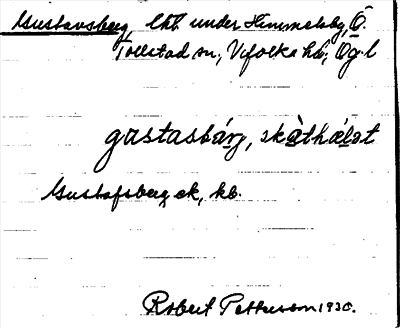 Gustavsberg, lht under Himmelsby, Ö.
Tollstad sn, Vifolka hd, Ög. l
gustasbárj, skàthálət
Gustafsberg ek, kb.
Robert Pettersson 1930.